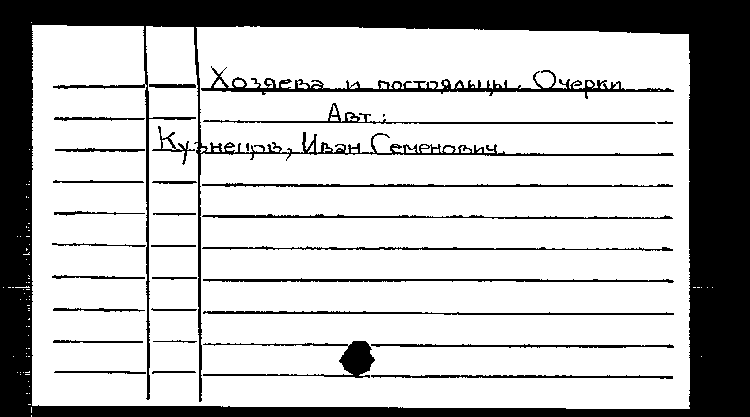 Хозяева и постояльцы. Очерки
Авт.:
Кузнецов, Иван Семенович.